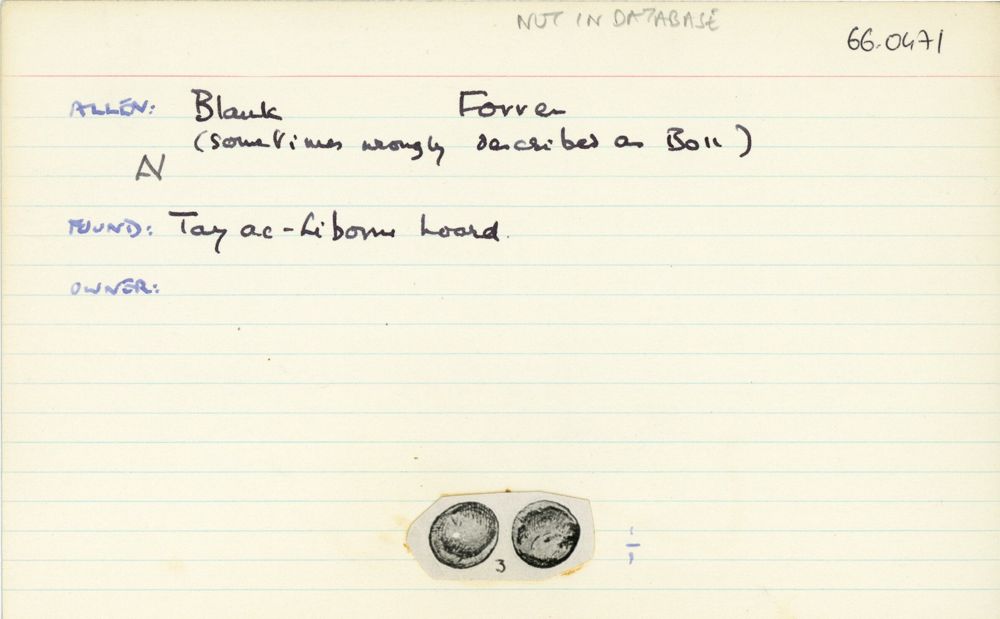 NOT IN DATABASE
66.0471
ALLEN: Blank Forrer
(sometimes wrongly described as Boii)
AV
FOUND: Tayac-Libourne hoard.
OWNER:
3
1/1